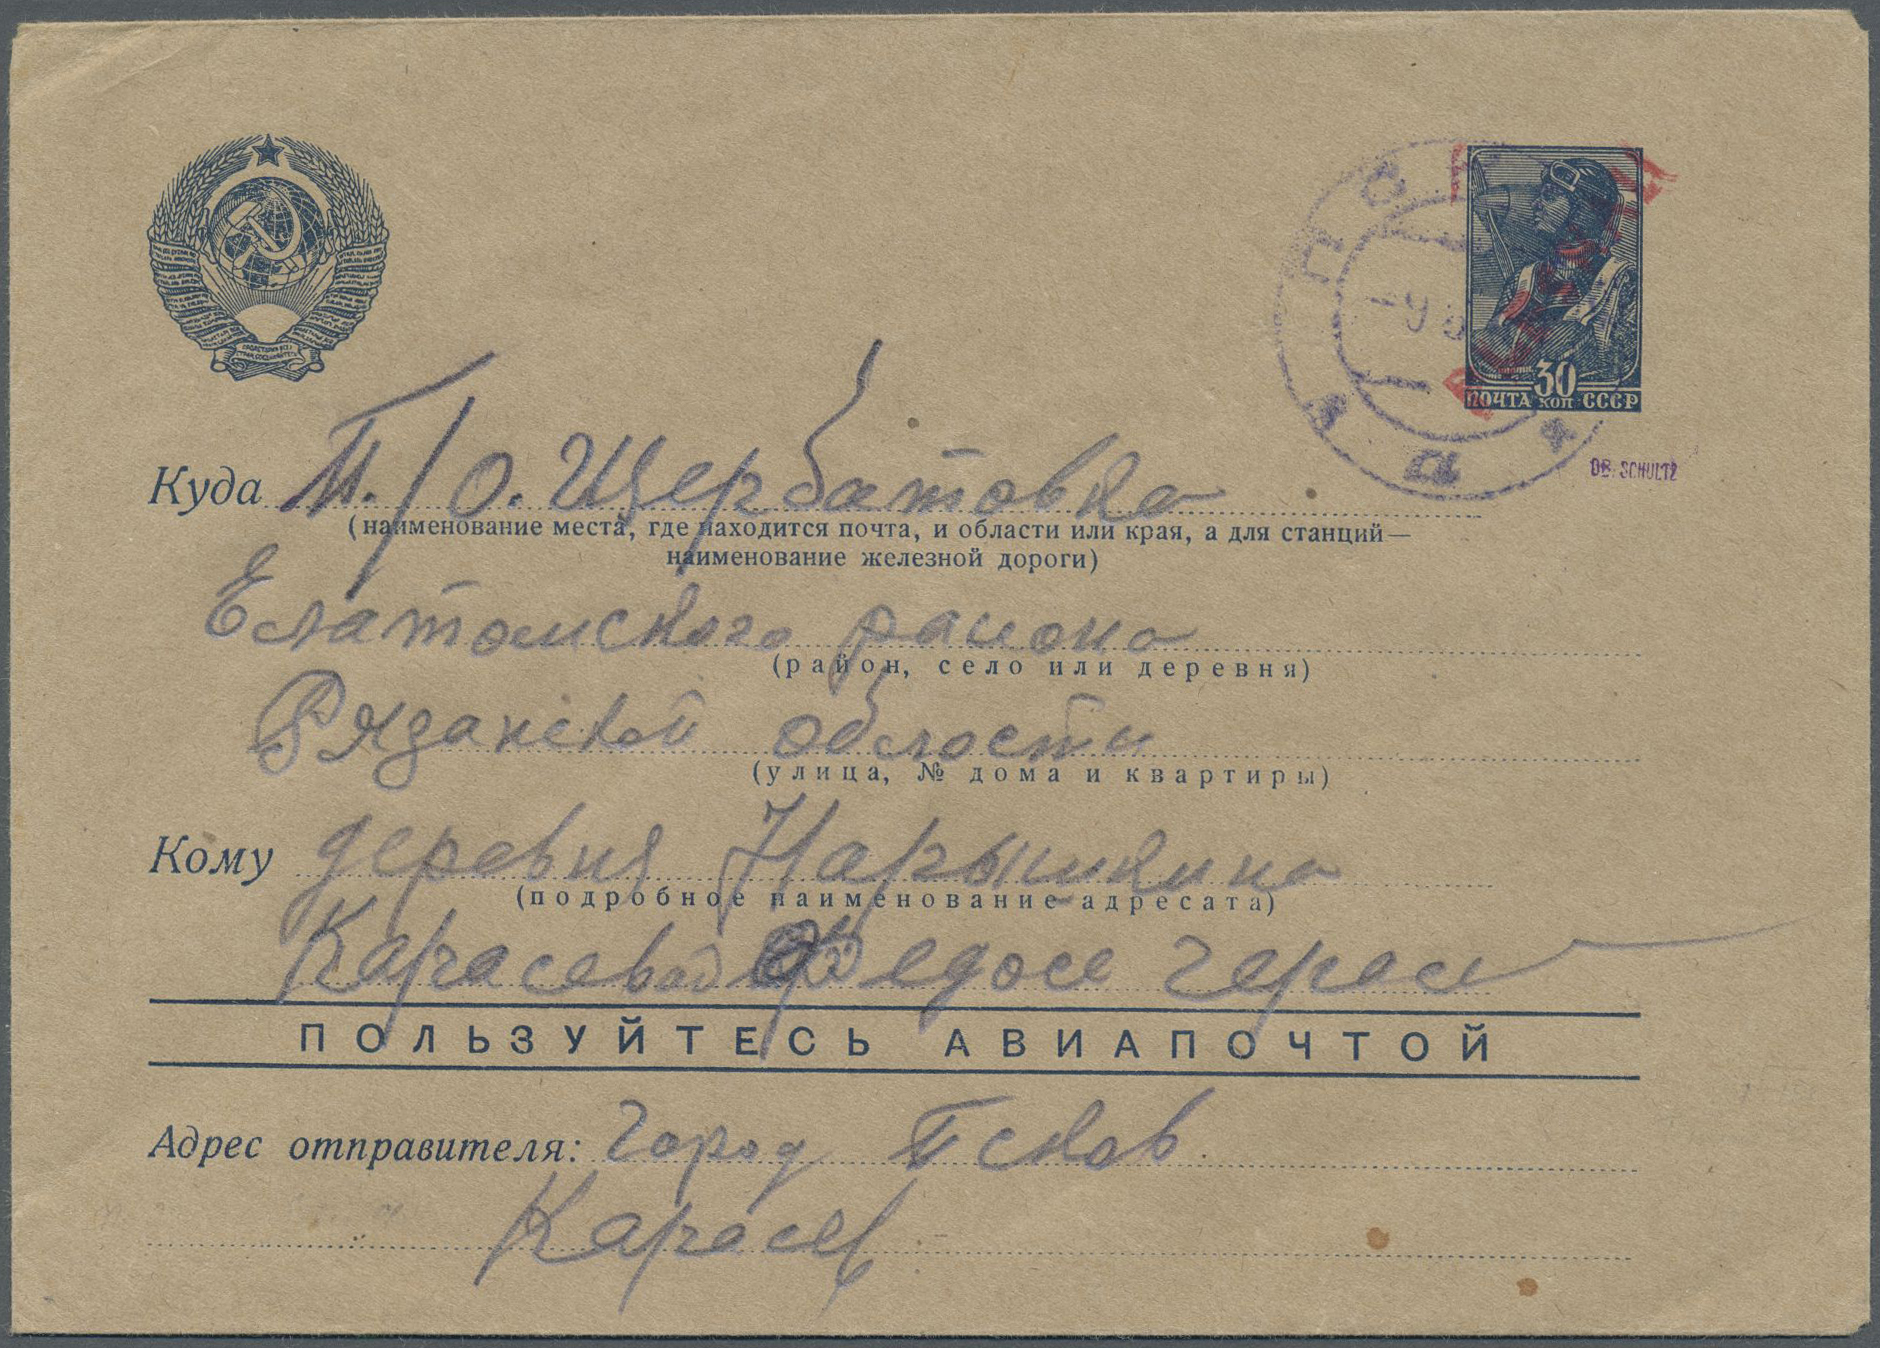 30
ПОЧТА КОП СССР
DR. SCHULTZ
Куда П./О. Щербатовка
(наименование места, где находится почта, и области или края, а для станций—
наименование железной дороги)
Елатомского района
(район, село или деревня)
Рязанской области
(улица, № дома и квартиры)
Кому деревня Нарышкина
(подробное наименование адресата)
Карасевой Федосе Герас
ПОЛЬЗУЙТЕСЬ АВИАПОЧТОЙ
Адрес отправителя: Город Псков
Карасев